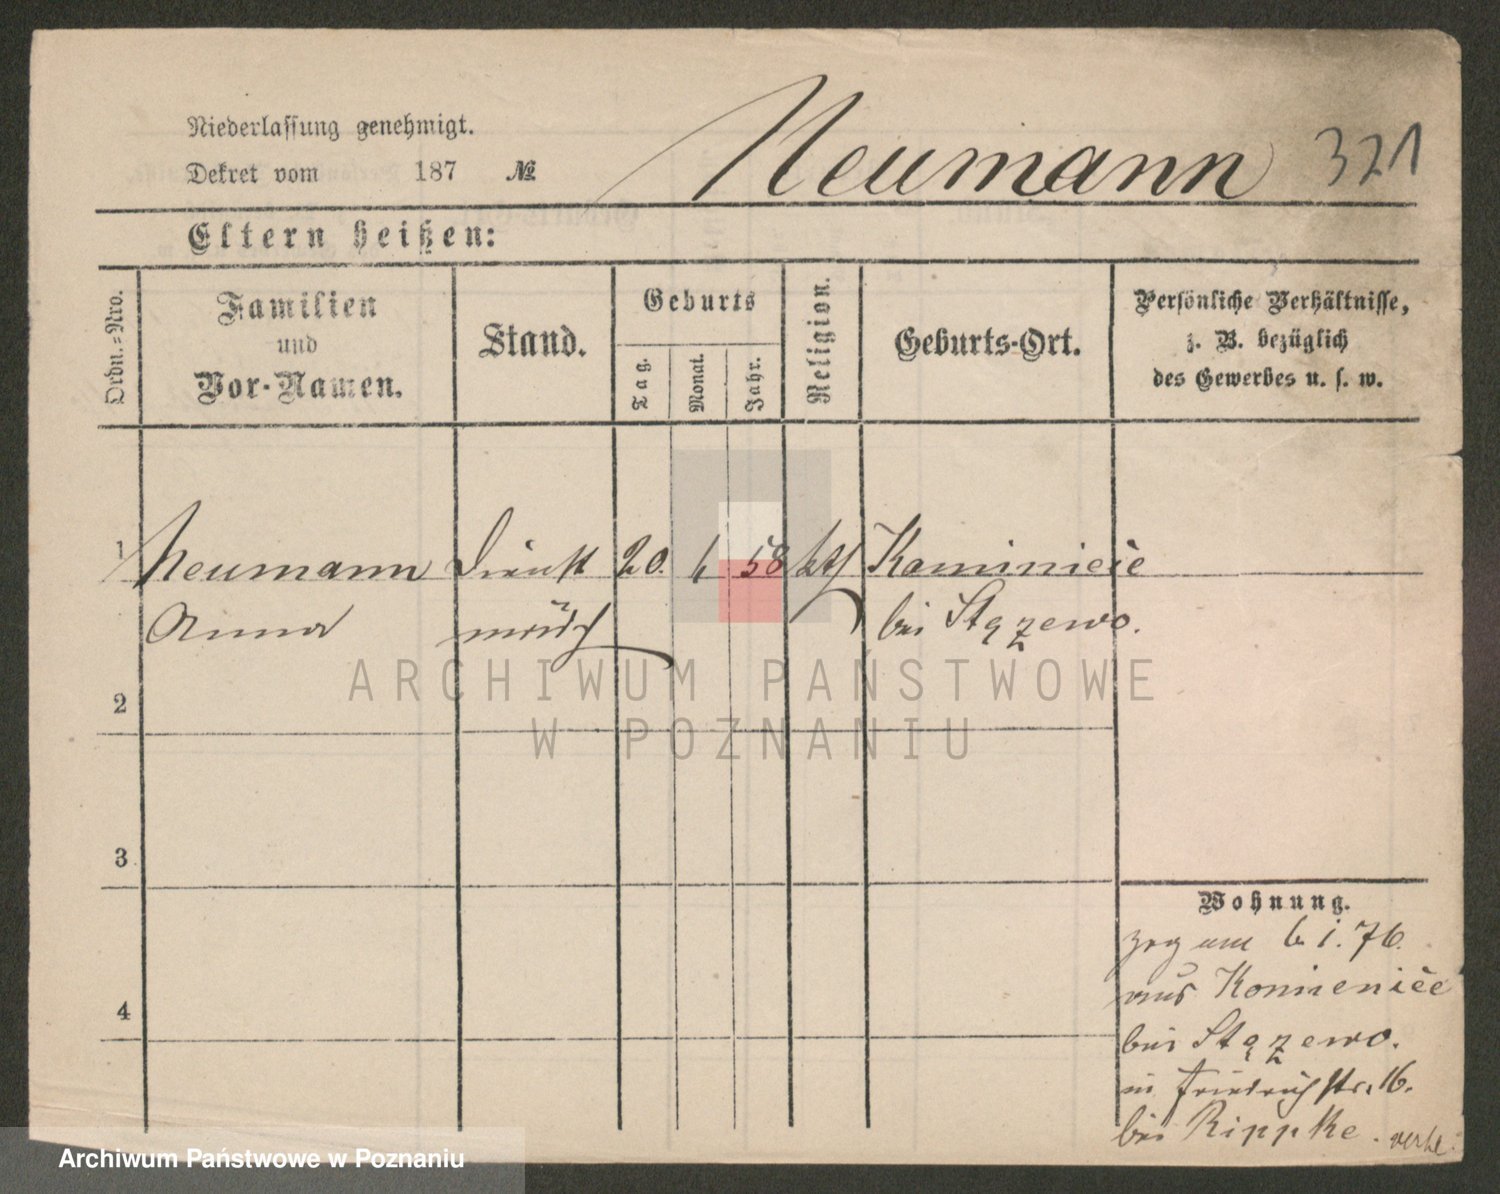 Niederlassung genehmigt.
Dekret vom 187 №
Neumann 321
Eltern heißen:
Ordn.-Nro.
Familien
und
Vor-Namen.
Stand.
Geburts
Tag.
Monat.
Jahr.
Religion.
Geburts-Ort.
Persönliche Verhältnisse,
z. B. bezüglich
des Gewerbes u. s. w.
1 Neumann Dienst 20. 58 kth Kaminieće
Anna mädch bei Stązewo.
ARCHIWUM PAŃSTWOWE
W POZNANIU
2
3
4
Wohnung.
zog am 6 1. 76.
aus Komieniće
bei Stązewo.
in Friedrichstr. 16.
bei Rippke.
Archiwum Państwowe w Poznaniu